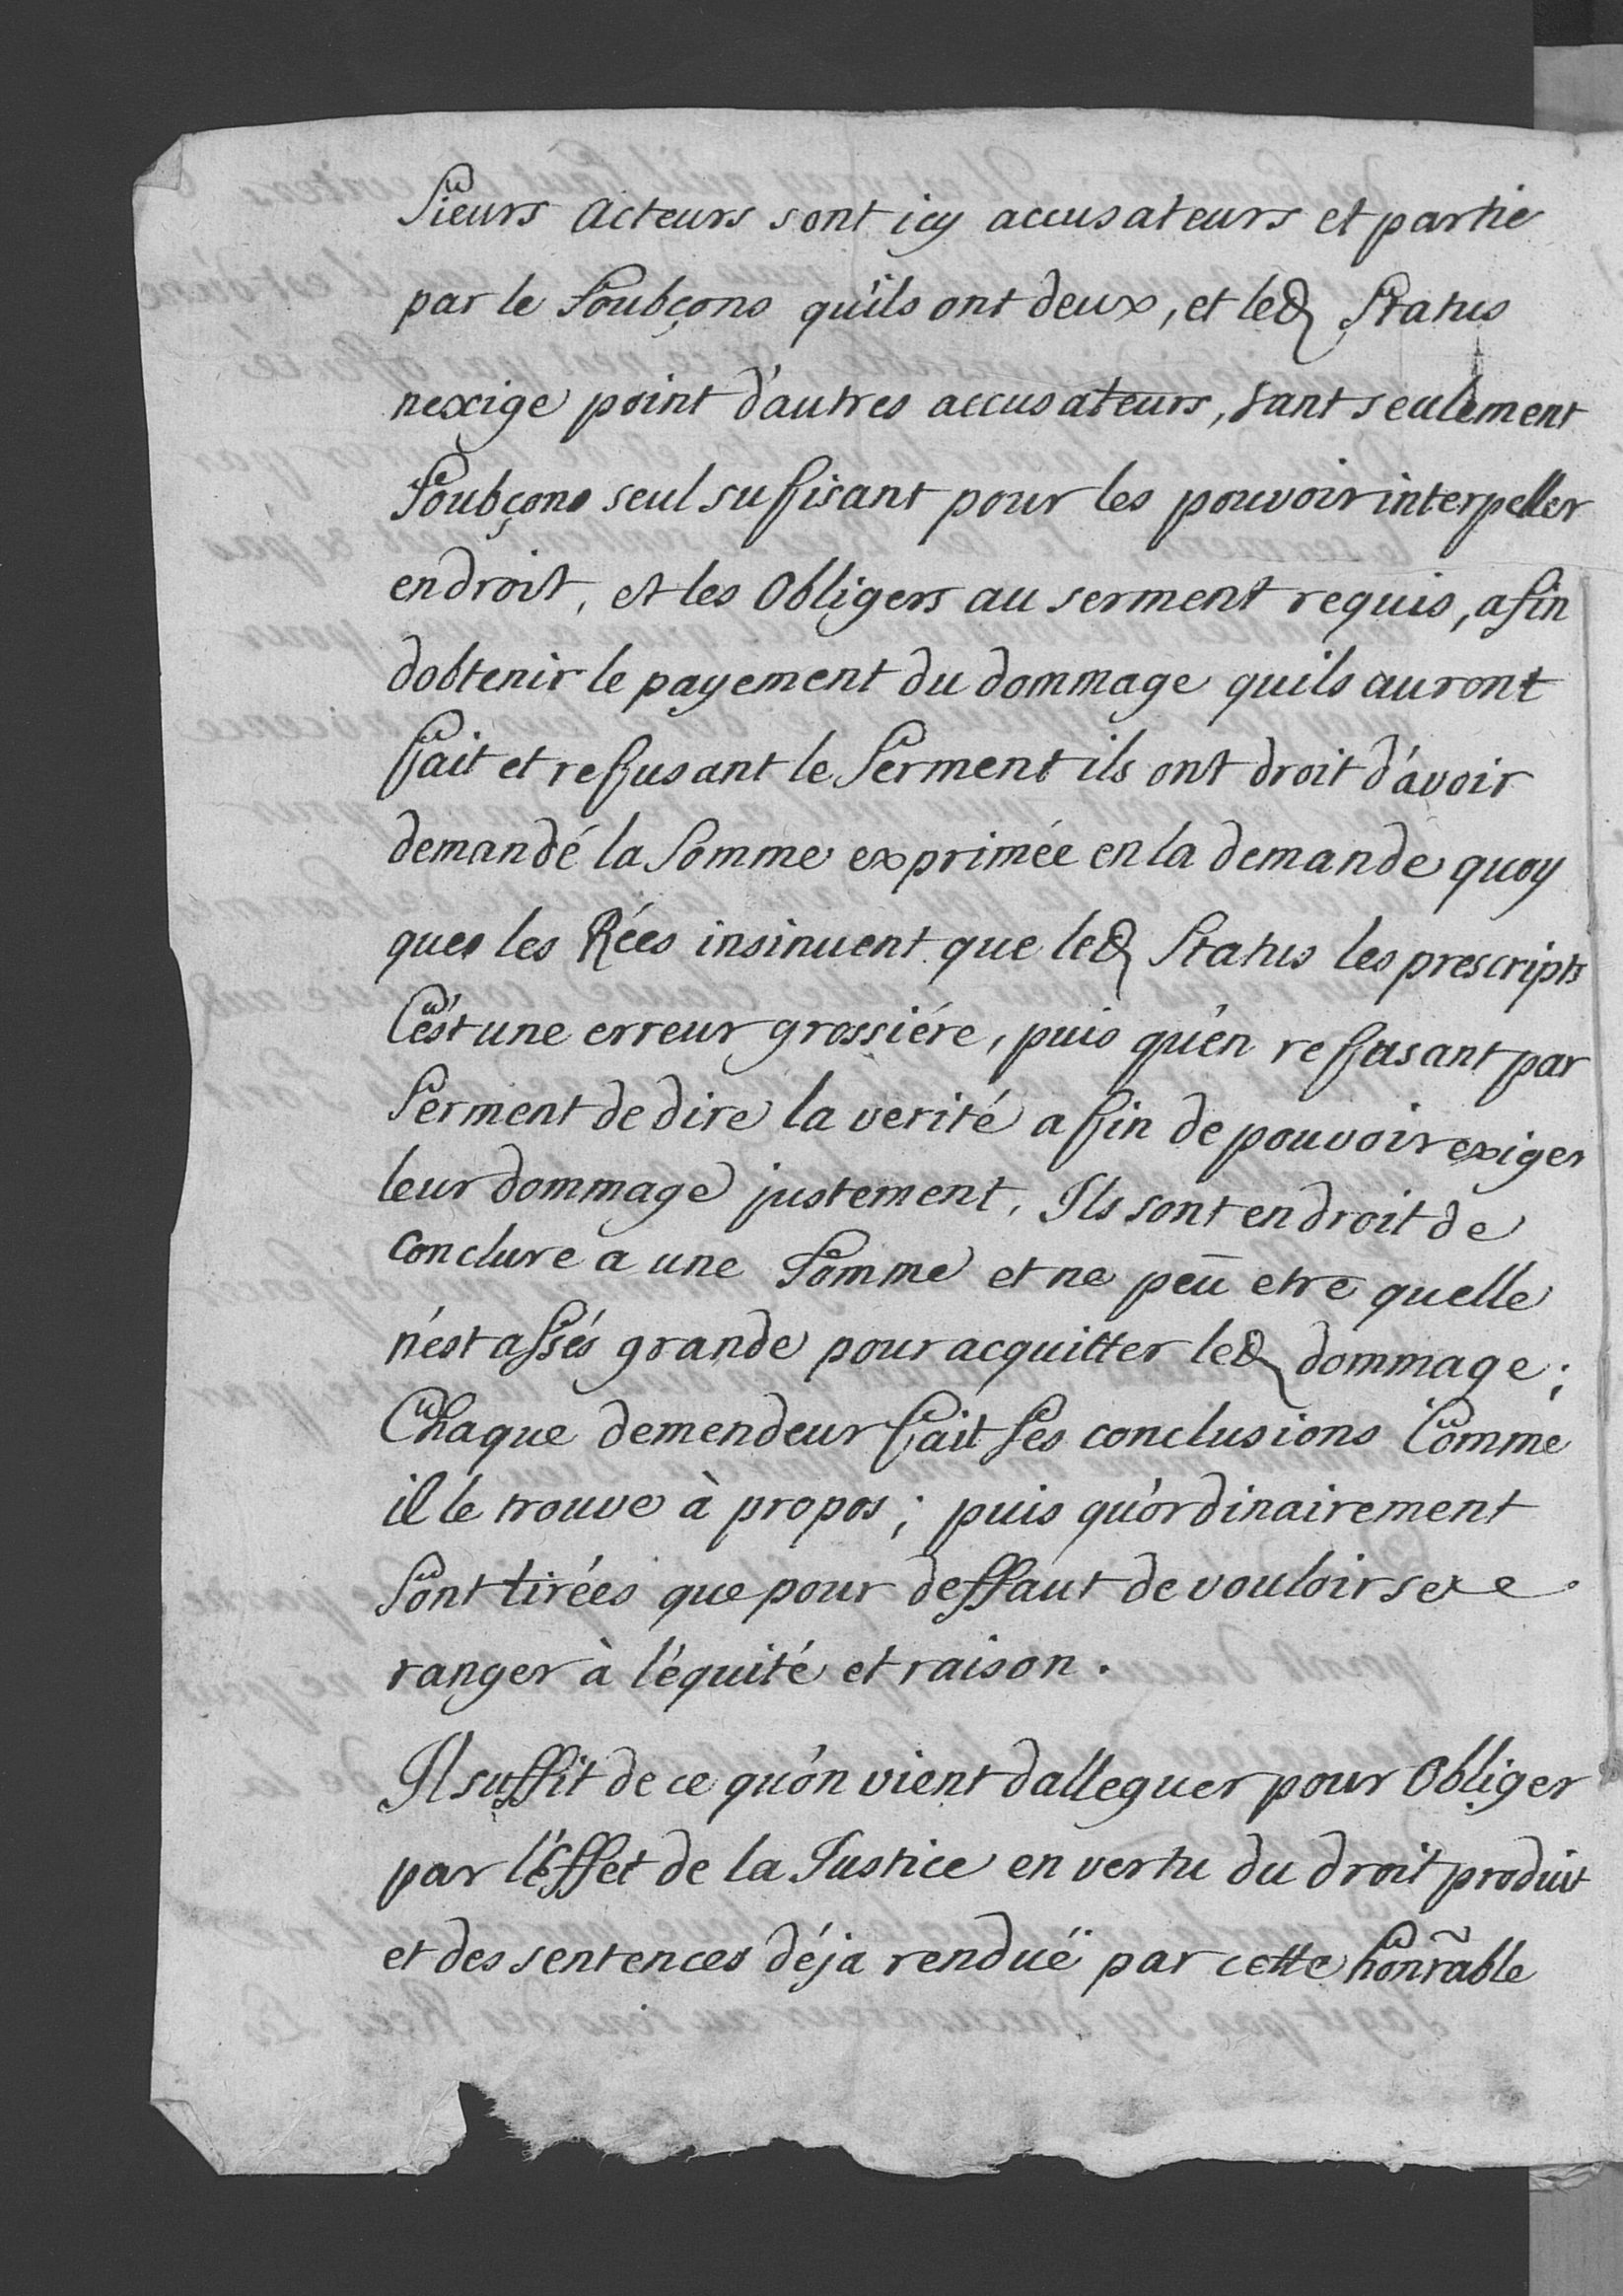 Sieurs Acteurs sont icy accusateurs et partie
par le Soubçons qu'ils ont deux, et led. Status
nexige point d'autres accusateurs, tant seulement
Soubçons seul suffisant pour les pouvoir interpeller
en droit, et les Obligers au serment requis, afin
dobtenir le payement du dommage quils auront
fait et reffusant le Serment ils ont droit d'avoir
demandé la Somme exprimée en la demande quoy
ques les Rées insinuent que led. Status les prescripts
C'est une erreur grossiére, puis qu'en reffusant par
Serment de dire la verité affin de pouvoir exiger
leur dommage justement, Ils sont en droit de
conclure a une Somme et ne peū etre quelle
n'est assés grande pour acquitter led. dommage;
Chaque demendeur fait ses conclusions Comme
il le trouve à propos; puis qu'ordinairement
Sont tirées que pour deffaut de vouloir se
ranger à l'équité et raison.
Il suffit de ce qu'on vient dalleguer pour Obliger
par l'Effet de la Justice en vertu du droit produit
et des sentences déja renduë par cette honr̃able